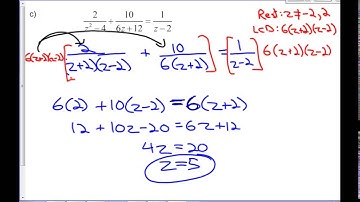 c) 2/(z²-4) + 10/(6z+12) = 1/(z-2)
Rest: z ≠ -2, 2
LCD: 6(z+2)(z-2)
6(z+2)(z-2) [ 2/((z+2)(z-2)) + 10/(6(z+2)) ] = [ 1/(z-2) ] 6(z+2)(z-2)
6(2) + 10(z-2) = 6(z+2)
12 + 10z - 20 = 6z + 12
4z = 20
z = 5